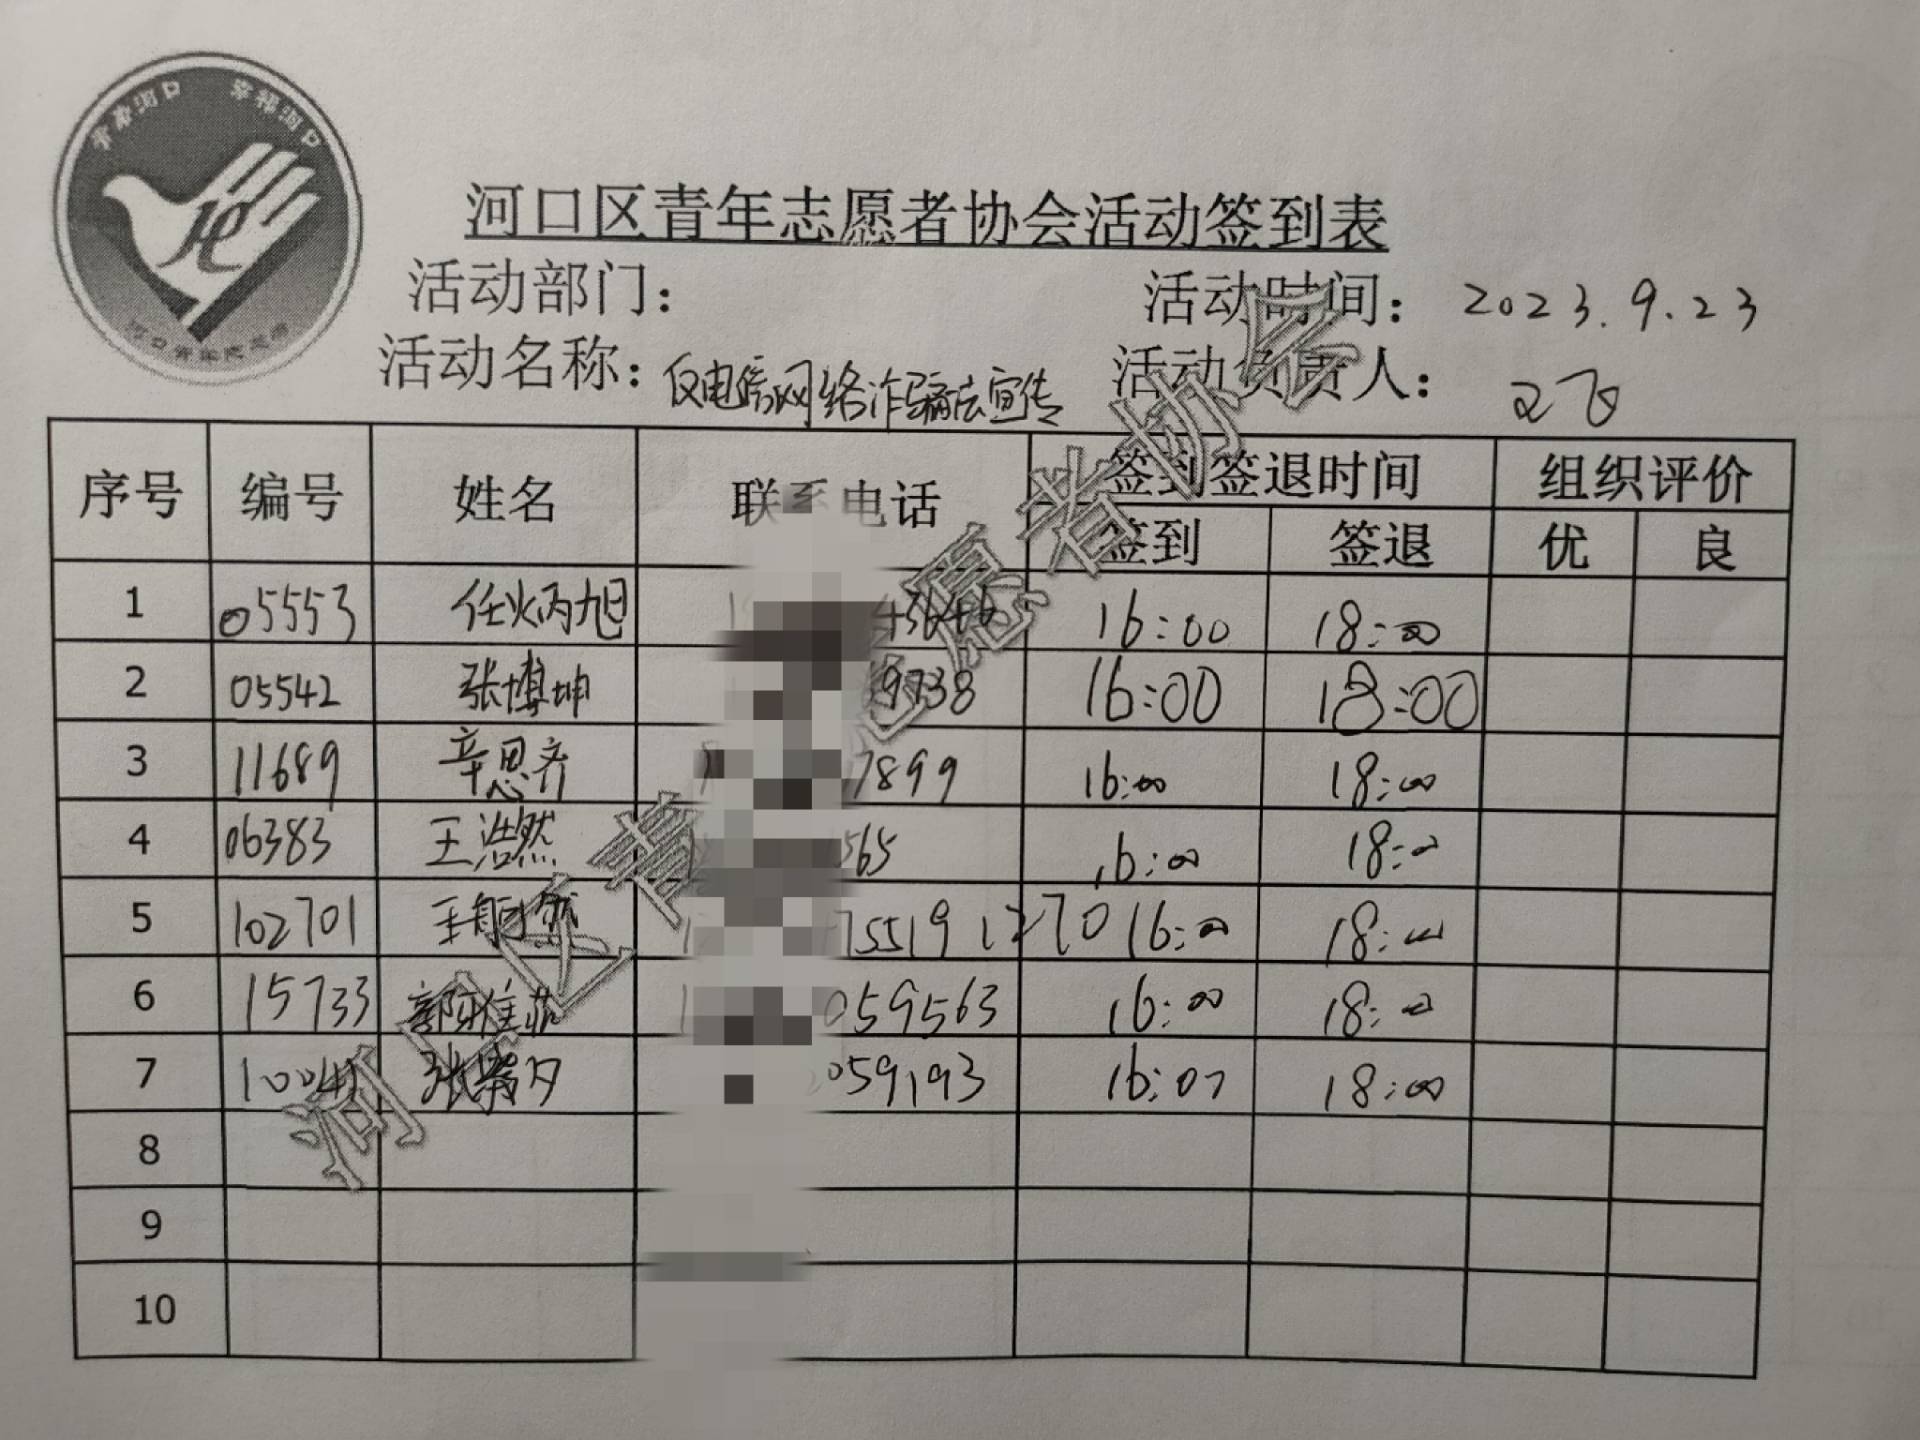 青春河口 幸福河口
河口区青年志愿者协会活动签到表
活动部门：
活动时间：2023.9.23
活动名称：反电信网络诈骗法宣传
活动负责人：
序号 编号 姓名 联系电话 签到签退时间 组织评价
签到 签退 优 良
1 05553 任炳旭 16:00 18:00
2 05542 张博坤 9738 16:00 18:00
3 11689 辛思齐 7899 16:00 18:00
4 06383 王浩然 565 16:00 18:00
5 102701 75519 1270 16:00 18:00
6 15733 059563 16:00 18:00
7 059193 18:00
8
9
10
河口区青年志愿者协会